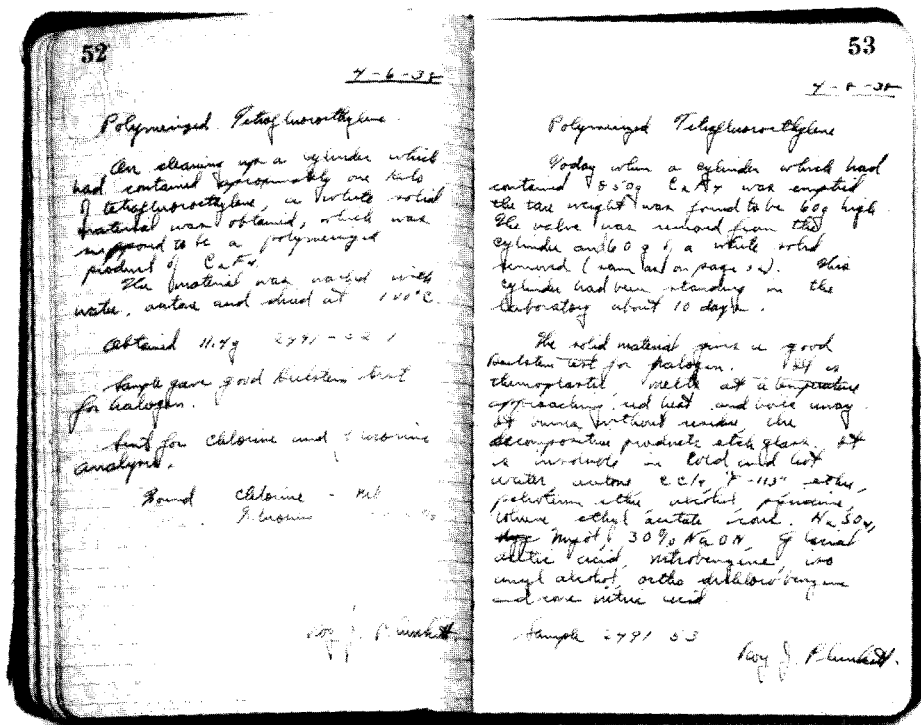 52
4-6-38
Polymerized Tetrafluoroethylene
On cleaning up a cylinder which
had contained approximately one kilo
of tetrafluoroethylene, a white solid
material was obtained, which was
supposed to be a polymerized
product of C2F4.
The material was washed with
water, acetone and dried at 100°C.
Obtained 11.4g 2491-52 1
Sample gave good Beilstein test
for halogen.
Sent for chlorine and fluorine
analysis.
Found Chlorine - Nil
Fluorine
Roy J. Plunkett
53
4-8-38
Polymerized Tetrafluoroethylene
Today when a cylinder which had
contained 850g C2F4 was emptied
the tare weight was found to be 60g high.
The valve was removed from the
cylinder and 60g of a white solid
removed (same as on page 52). This
cylinder had been standing in the
laboratory about 10 days.
The solid material gives a good
Beilstein test for halogen. It is
thermoplastic melts at a temperature
approaching red heat and boils away.
It burns without residue, the
decomposition products etch glass. It
is insoluble in cold and hot
water acetone CCl4 F-113 ether,
petroleum ether alcohol, pyridine,
toluene ethyl acetate conc. H2SO4,
30% NaOH, glacial
acetic acid, nitrobenzene, iso
amyl alcohol, ortho dichlorobenzene
and conc nitric acid
Sample 2491 53
Roy J. Plunkett.